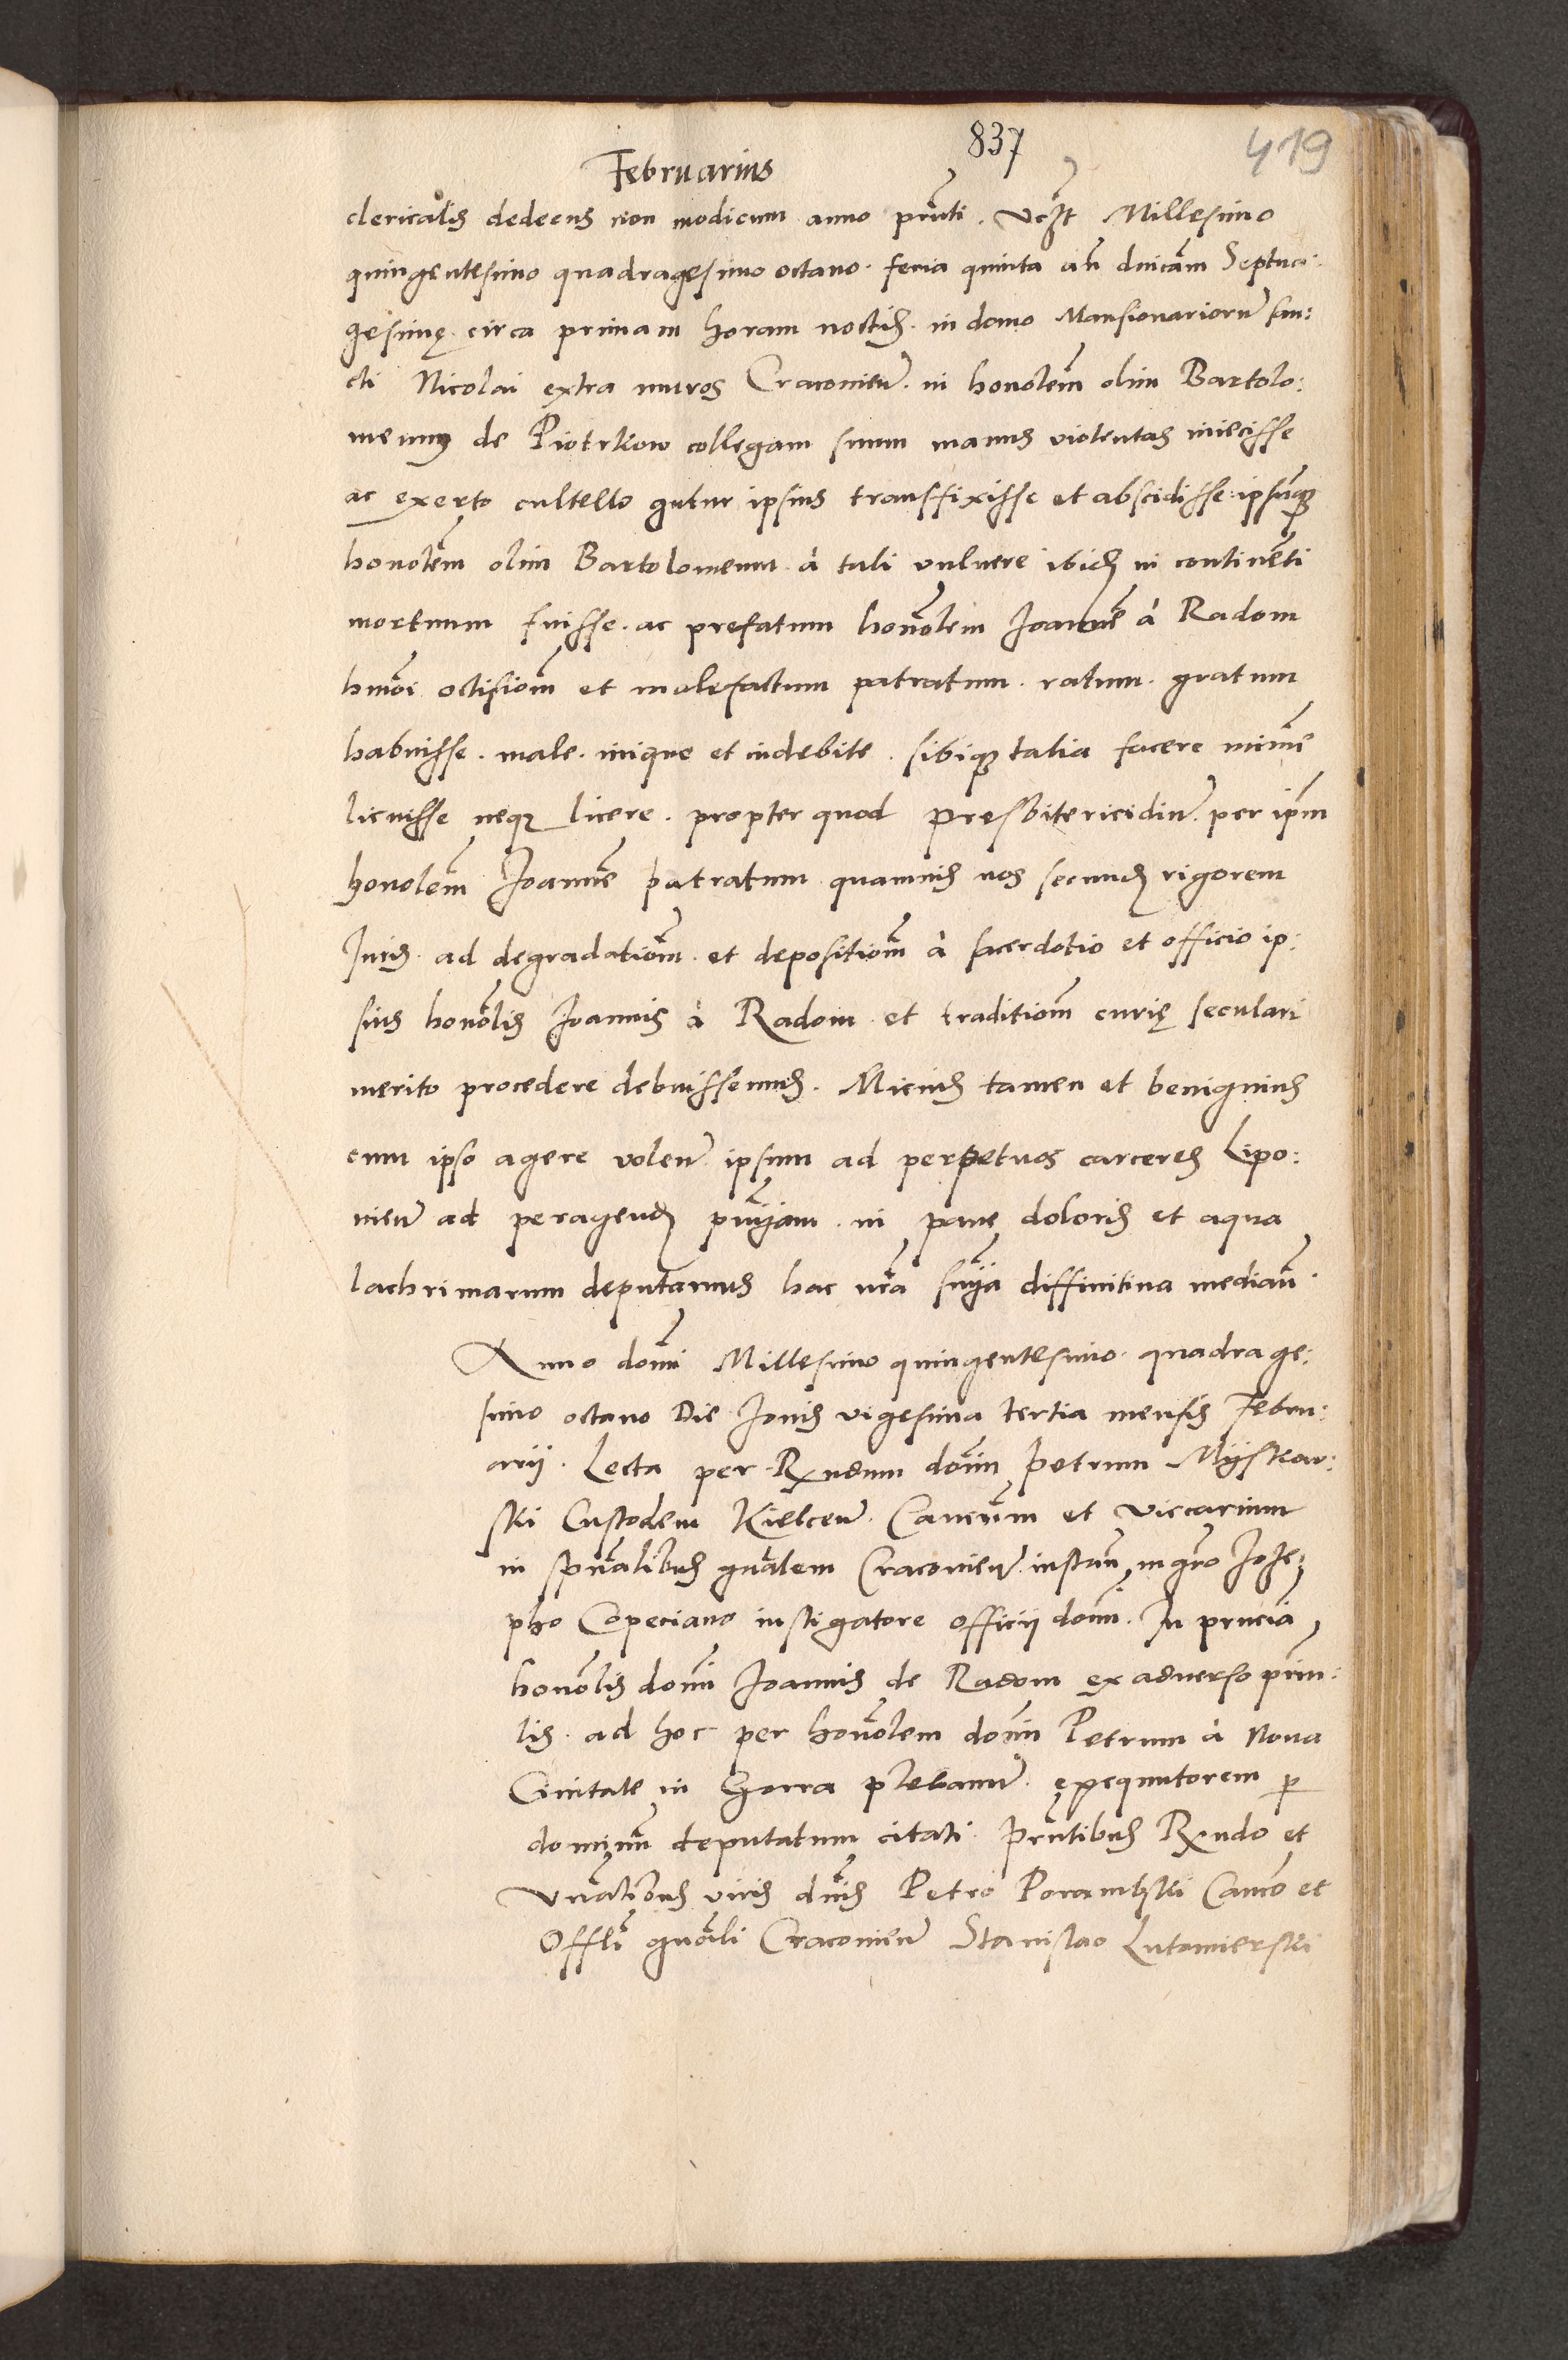 837
419
Februarius
clericalis dedecus non modicum anno prnti. Vcʒt Millesimo
quingentesimo quadragesimo octavo. feria quinta an̄ dnicam Septua:
gesimę. circa primam horam noctis. in domo Mansionariorum san:
cti Nicolai extra muros Cracovien̄. in honolem olim Bartolo:
meum de Piotrkow collegam suum manus violentas iniecisse
ac exerto cultello gutur ipsius transffixisse et abscidisse. ipsumqʒ
honolem olim Bartolomeum à tali vulnere ibidem in continenti
mortuum fuisse. ac prefatum honolem Joannē à Radom
hmōi occisionem et malefactum patratum. ratum. gratum
habuisse. male. inique et indebite. sibiqʒ talia facere minimē
licuisse neqʒ licere. propter quod presbitericidium per ipm
honolem Joannē patratum quamvis nos secundʒ rigorem
Juris. ad degradationem. et depositionem à sacerdotio et officio ip:
sius honolis Joannis à Radom. et traditionem curię seculari
merito procedere debuissemus. Micius tamen et benignius
cum ipso agere volen̄ ipsum ad perpetuos carceres Lipo:
vien̄ ad peragendʒ pnīam. in pane doloris et aqua
lachrimarum deputamus hac nrā snīa diffinitiva median̄.
Anno domi Millesimo quingentesimo quadrage:
simo octavo Die Jovis vigesima tertia mensis Febru:
arij. Lecta per Rndum domin Petrum Myskow:
ski Custodem Kielcen̄. Canicum et Viccarium
in spiralibus gnalem Cracovien̄. instan̄ mgro Jose:
pho Copeciano instigatore officij domi. In prncia
honolis domi Joannis de Radom ex adverso prin:
lis. ad hoc per honolem domin Petrum à Nova
Civitate in Gorra plebanum. exequutorem p
dominum deputatum citati. prntibus Rndo et
Vnalibus viris dnis Petro Porambski Canco et
Offli gnali Cracovien̄ Stanislao Lutomierski